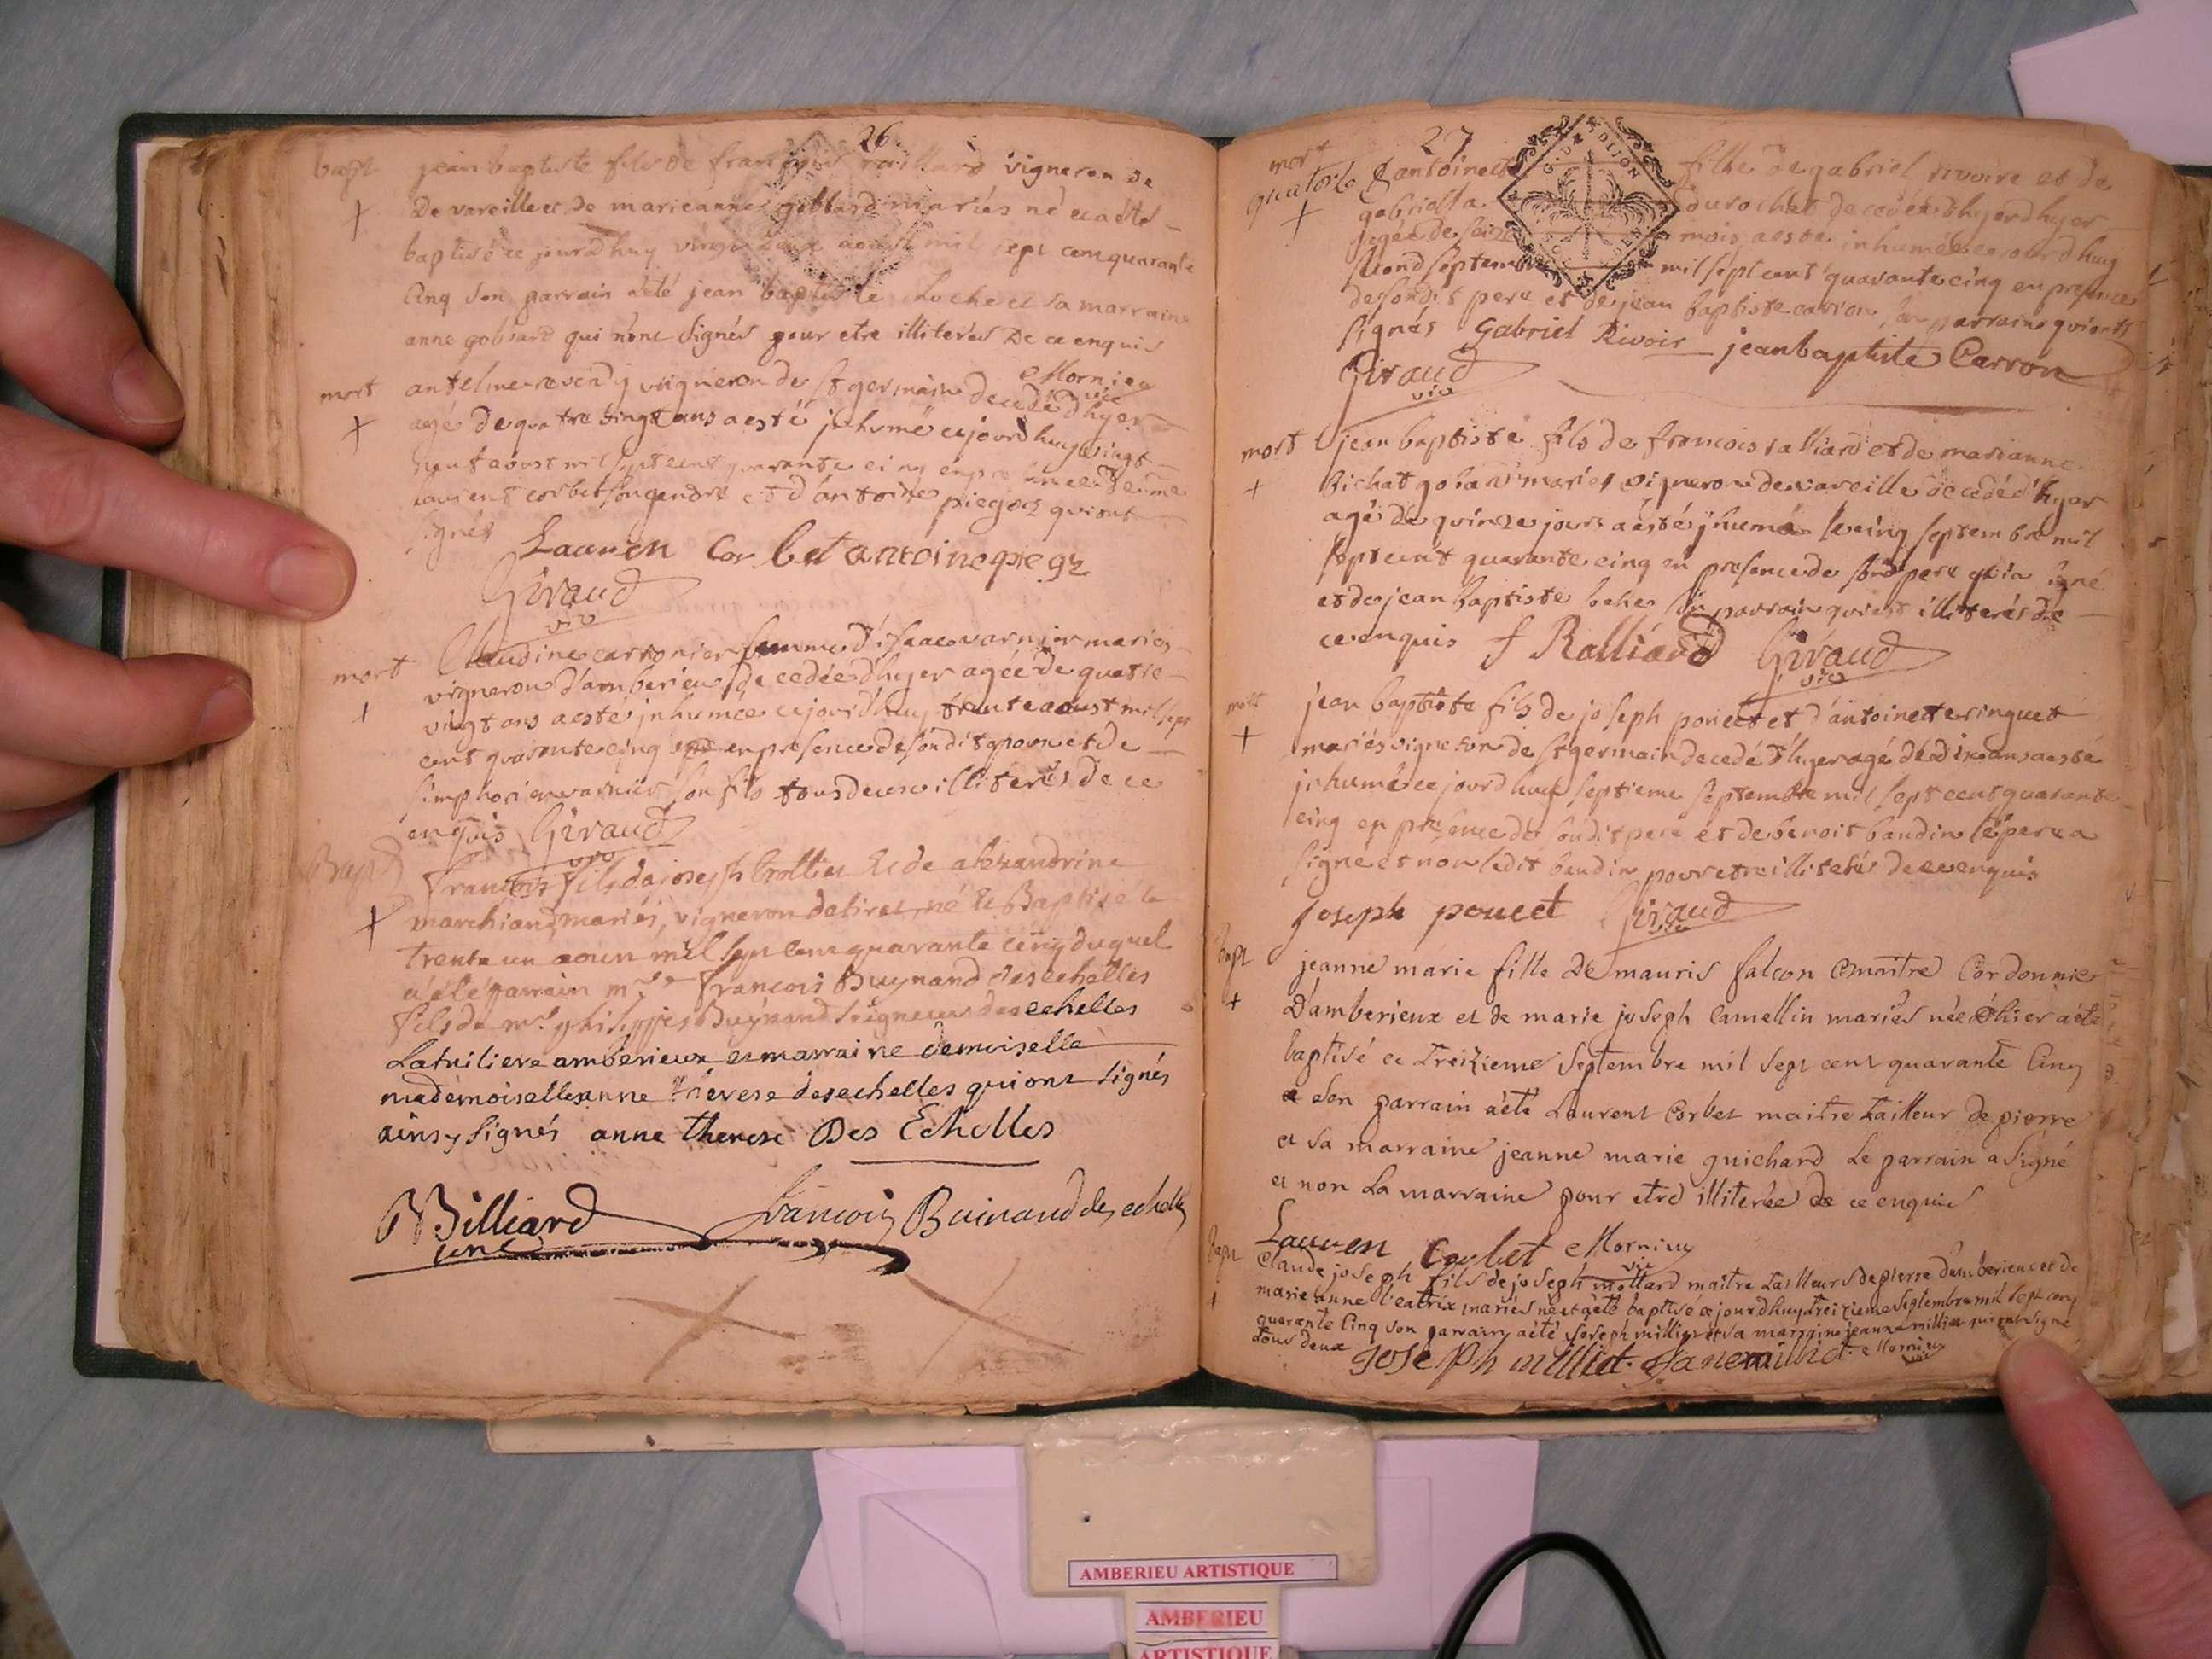 26
bapt jean baptiste fils de françois ralliard vigneron de
+ De vareille et de marieanne gobbard mariés né et a été
baptisé ce jourdhuy vingt deux aoust mil sept cent quarante
Cinq son parrain a été jean baptiste Loche et sa marraine
anne gobbard qui nont signés pour etre illiterés De ce enquis
Mornieu
vic
mort antelme revendy vigneron de st germain decedé dhyer
+ agé de quatre vingt ans a esté jnhumé cejourdhuy vingt
neuf aoust mil sept cent quarante cinq en presence de
laurent corbet son gendre et d'antoine piegoz qui ont
signés
Lauren Corbet antoine piegz
Giraud
vic
mort Claudine carronier femme d'isaac varnier mariés
vigneron d'amberieu decedée dhyer agée de quatre
+ vingt ans a esté jnhumée cejourd'huy trente aoust mil sept
cent quarante cinq en presence de sondit epoux et de
simphorien varnier son fils tous deux illiterés de ce
enquis Giraud
vic
Bapt françois fils de joseph trollier et de alexandrine
+ marchiand mariés, vigneron de tiret, né et Baptisé le
trente un aoust mil sept cent quarante cinq duquel
a été parrain mr françois Buynand des echelles
fils de mr philippes Buynand seigneur des echelles
Latuiliere amberieux et marraine demoiselle
mademoiselle anne therese des echelles qui ont signés
ainsy signés anne therese Des Echelles
Billiard francois Buinand des echelles
27
mort
quatorze antoinette fille de gabriel rivoire et de
+ gabriella durochat decedée dhyer
agée de seize mois a esté inhumée cejourdhuy
second septembre mil sept cent quarante cinq en presence
de sondit pere et de jean baptiste carron son parrain qui ont
signés Gabriel Rivoir jean baptiste Carron
Giraud
vic
mort jean baptiste fils de francois ralliard et de marianne
+ Richat gobard mariés vigneron de vareille decedé d'hyer
agé de quinze jours a esté jnhumé le cinq septembre mil
sept cent quarante cinq en presence de sondit pere qui a signé
et de jean baptiste loche son parrain qui est illiterés de
ce enquis f Ralliard Giraud
vic
mort jean baptiste fils de joseph poncet et d'antoinette ringuet
+ mariés vigneron de st germain decedé d'hyer agé de dix ans a esté
jnhumé ce jourd huy septieme septembre mil sept cent quarante
cinq en presence de sondit pere et de benoit baudin le pere a
signé et non ledit baudin pour etre illiterés de ce enquis
Joseph poncet Giraud
vic
Bapt jeanne marie fille de mauris falcon maitre Cordonnier
+ D'amberieux et de marie joseph Camellin mariés née d'hier a été
baptisé ce Treizieme septembre mil sept cent quarante Cinq
son parrain a été Laurent Corbet maitre tailleur de pierre
et sa marraine jeanne marie guichard Le parrain a signé
et non La marraine pour etre illiterée de ce enquis
Lauren Corbet Mornieu
vic
Bapt Claude joseph fils de joseph mottard maitre tailleurs de pierre D'amberieu et de
+ marie anne beatrix mariés né et a été baptisé ce jourdhuy treizieme septembre mil sept cent
quarante Cinq son parrain a été joseph milliet et sa marraine jeanne milliet qui ont signé
tous deux Joseph milliet Jane milliet Mornieu
vic
AMBERIEU ARTISTIQUE
AMBERIEU
ARTISTIQUE